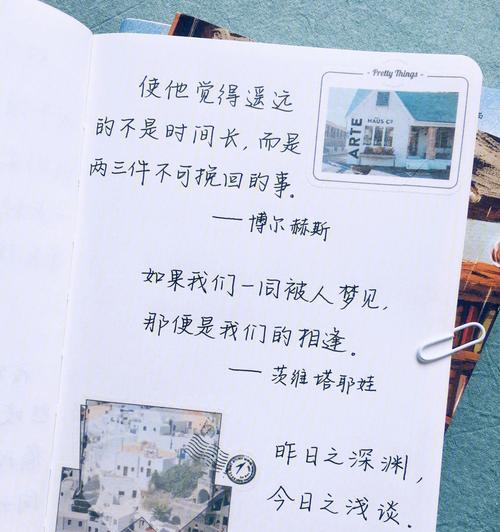 使他觉得遥远
的不是时间长,而是
两三件不可挽回的事。
——博尔赫斯
Pretty Things
ARTE
HAUS Co
如果我们一同被人梦见,
那便是我们的相逢。
——茨维塔耶娃
昨日之深渊,
今日之浅谈.